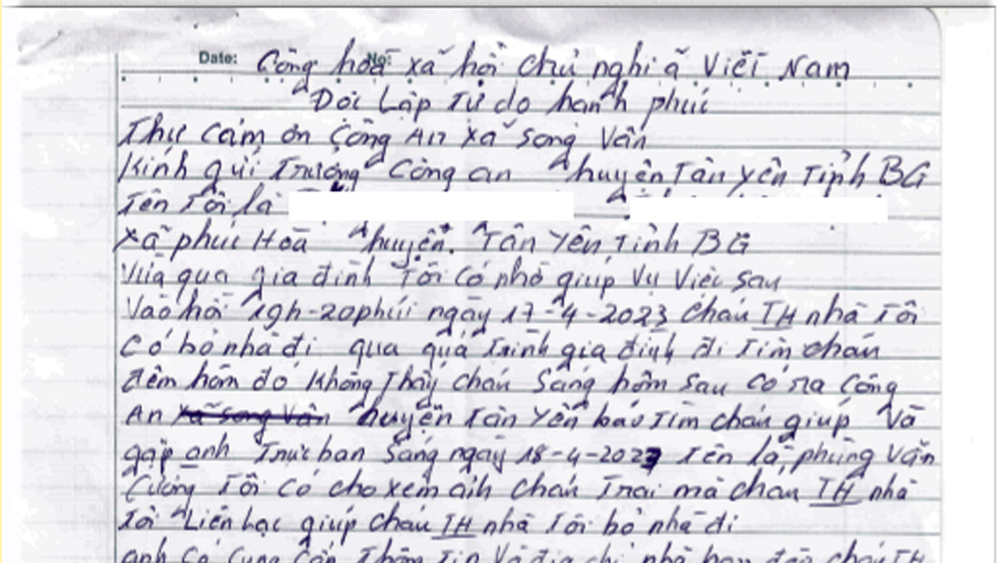 Date: No:
Cộng hoà xã hội chủ nghĩa Việt Nam
Độc Lập Tự do hạnh phúc
Thư cảm ơn Công An xã Song Vân
Kính gửi Trưởng Công an huyện Tân yên Tỉnh BG
Tên Tôi là
xã phúc Hoà huyện. Tân Yên Tỉnh BG
Vừa qua gia đình Tôi có nhờ giúp Vụ Việc sau
Vào hồi 19h-20phút ngày 17-4-2023 cháu TH nhà Tôi
có bỏ nhà đi qua quá trình gia đình đi Tìm cháu
đêm hôm đó không Thấy cháu Sáng hôm sau có ra Công
An xã song Vân huyện Tân Yên báo Tìm cháu giúp Và
gặp anh Trực ban Sáng ngày 18-4-2023 Tên là phùng Văn
Cường Tôi có cho xem ảnh cháu Trai mà cháu TH nhà
Tôi Liên hạc giúp cháu TH nhà Tôi bỏ nhà đi
anh có Cung Cấp Thông Tin Và địa chỉ nhà bạn đến cháu TH